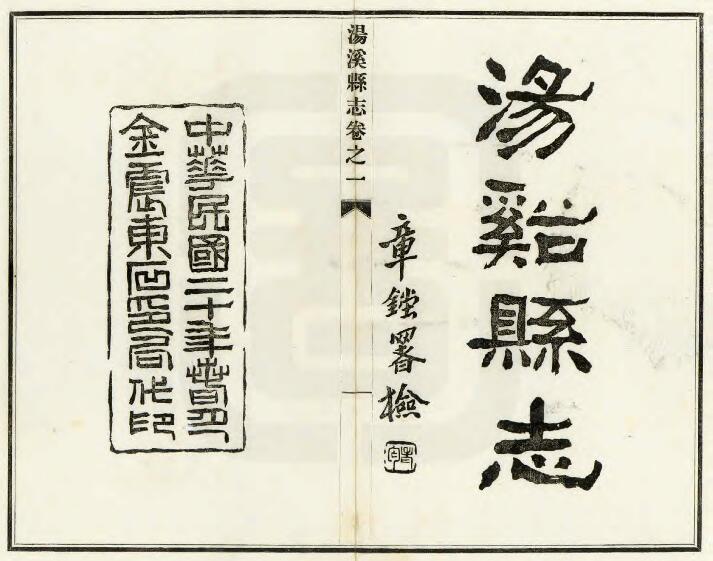 湯谿縣志
章署檢
湯溪縣志卷之一
中華民國二十年春月
金震東石印局代印